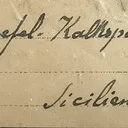 efel. Kalkspa
Sicilien